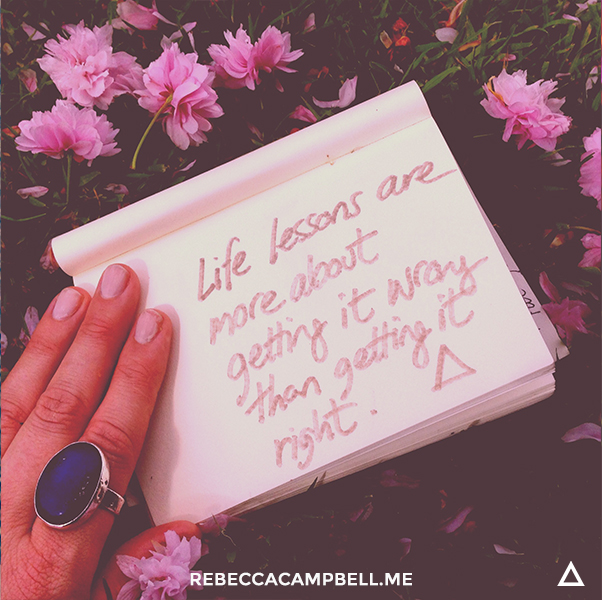 Life lessons are
more about
getting it wrong
than getting it
right.
REBECCACAMPBELL.ME